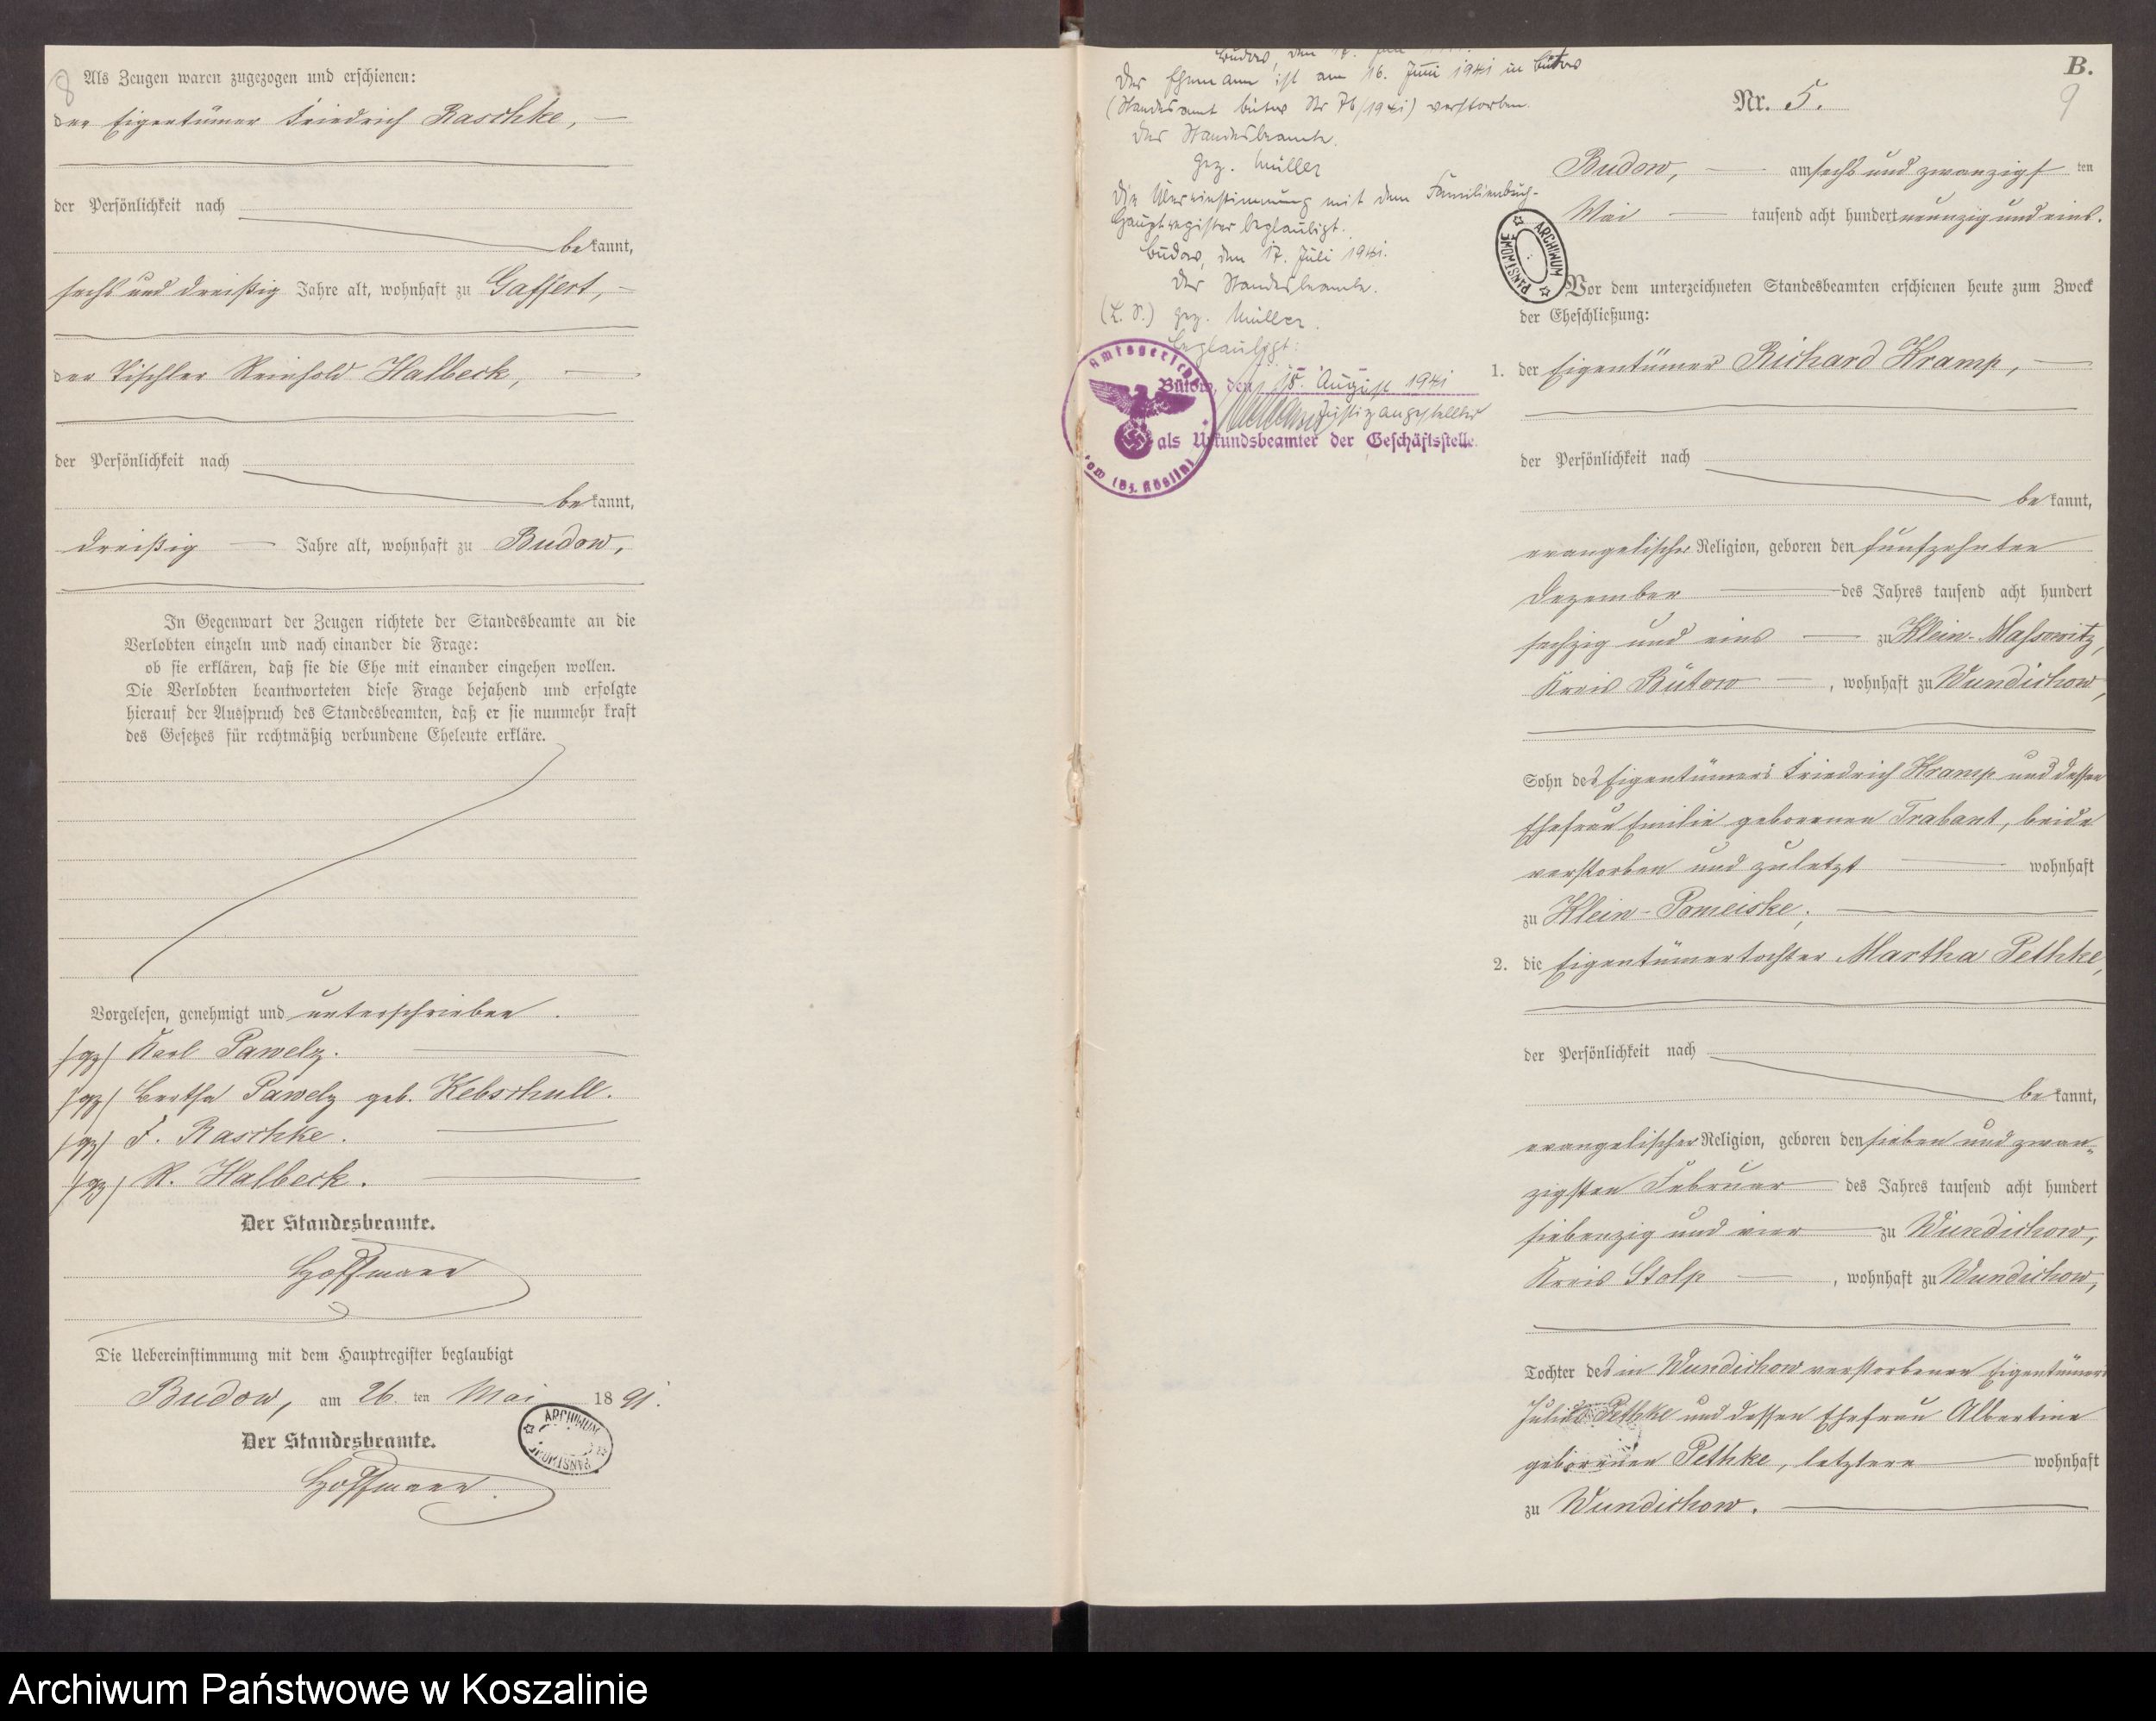 8
Als Zeugen waren zugezogen und erschienen:
der Eigentümer Friedrich Raschke,
der Persönlichkeit nach
bekannt,
sechs und dreißig Jahre alt, wohnhaft zu Gaffert,
der Tischler Reinhold Halbeck,
der Persönlichkeit nach
bekannt,
dreißig Jahre alt, wohnhaft zu Budow,
In Gegenwart der Zeugen richtete der Standesbeamte an die
Verlobten einzeln und nach einander die Frage:
ob sie erklären, daß sie die Ehe mit einander eingehen wollen.
Die Verlobten beantworteten diese Frage bejahend und erfolgte
hierauf der Ausspruch des Standesbeamten, daß er sie nunmehr kraft
des Gesetzes für rechtmäßig verbundene Eheleute erkläre.
Vorgelesen, genehmigt und unterschrieben.
(gz) Karl Pawelz.
(gz) Bertha Pawelz geb. Kebschull.
(gz) F. Raschke.
(gz) R. Halbeck.
Der Standesbeamte.
Hoffmann
Die Uebereinstimmung mit dem Hauptregister beglaubigt
Budow, am 26. ten Mai 1891.
Der Standesbeamte.
Hoffmann.
ARCHIWUM PAŃSTWOWE
Budow, den 17.
Der Ehemann ist am 16. Juni 1941 in Bütow
(Standesamt Bütow Nr 76/1941) verstorben.
Der Standesbeamte.
gez. Müller
Die Übereinstimmung mit dem Familienbuch-
Hauptregister beglaubigt.
Budow, den 17. Juli 1941.
Der Standesbeamte.
(L. S.) gez. Müller.
Beglaubigt:
Bütow, den 15. August 1941
Justizangestellter
als Urkundsbeamter der Geschäftsstelle.
Amtsgericht
(Bz. Köslin)
B.
Nr. 5.
9
Budow, am sechs und zwanzigsten
Mai tausend acht hundert neunzig und eins.
ARCHIWUM PAŃSTWOWE
Vor dem unterzeichneten Standesbeamten erschienen heute zum Zweck
der Eheschließung:
1. der Eigentümer Richard Kramp,
der Persönlichkeit nach
bekannt,
evangelischer Religion, geboren den fünfzehnten
Dezember des Jahres tausend acht hundert
sechzig und eins zu Klein-Massowitz,
Kreis Bütow, wohnhaft zu Wundichow,
Sohn des Eigentümers Friedrich Kramp und dessen
Ehefrau Emilie geborenen Trabant, beide
verstorben und zuletzt wohnhaft
zu Klein-Pomeiske;
2. die Eigentümertochter Martha Pethke,
der Persönlichkeit nach
bekannt,
evangelischer Religion, geboren den sieben und zwan-
zigsten Februar des Jahres tausend acht hundert
siebenzig und vier zu Wundichow,
Kreis Stolp, wohnhaft zu Wundichow,
Tochter des in Wundichow verstorbenen Eigentümers
Julius Pethke und dessen Ehefrau Albertine
geborenen Pethke, letztere wohnhaft
zu Wundichow.
Archiwum Państwowe w Koszalinie